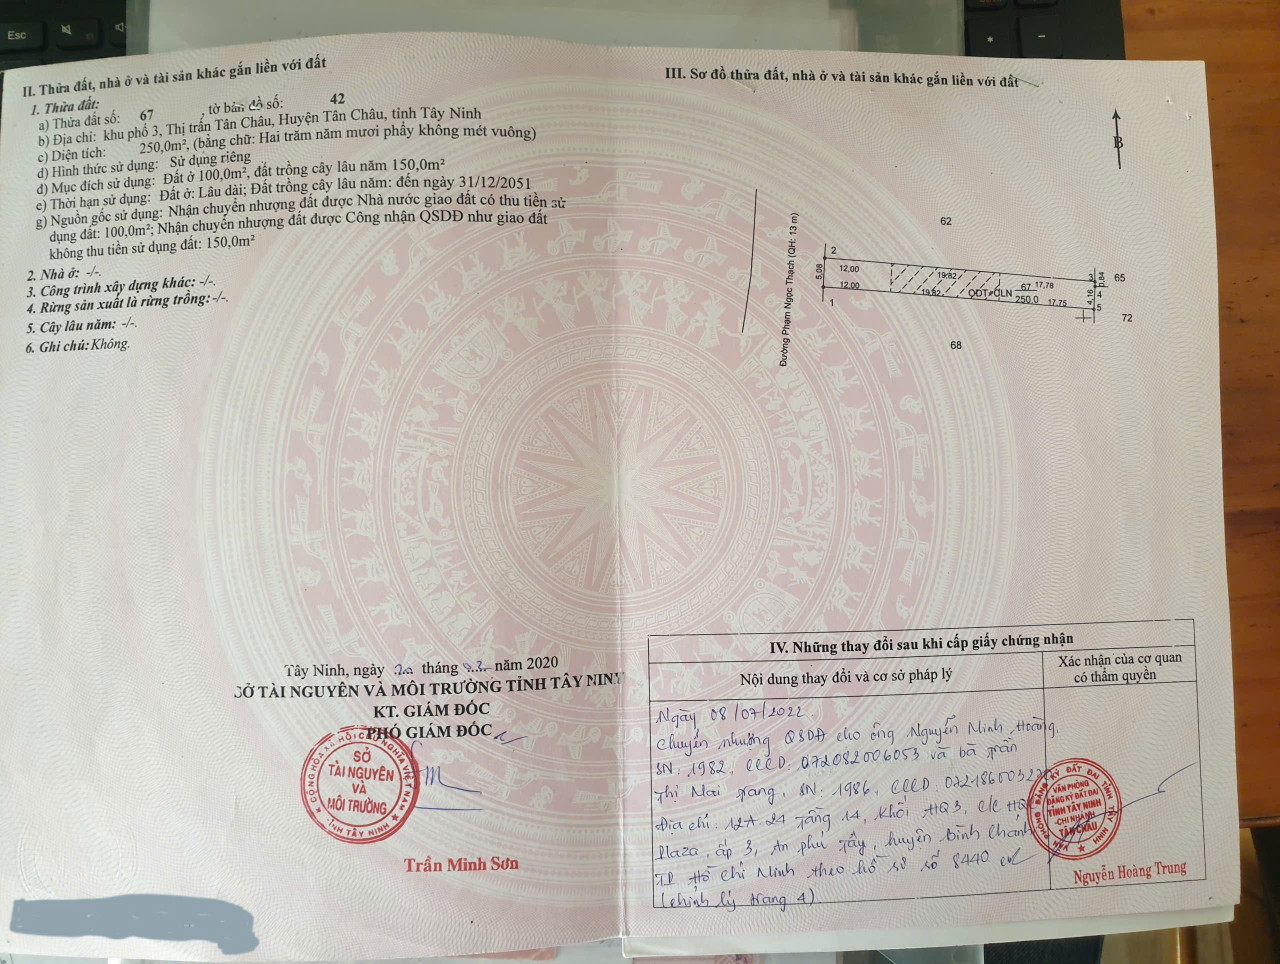 Esc
II. Thửa đất, nhà ở và tài sản khác gắn liền với đất
1. Thửa đất:
a) Thửa đất số: 67 , tờ bản đồ số: 42
b) Địa chỉ: khu phố 3, Thị trấn Tân Châu, Huyện Tân Châu, tỉnh Tây Ninh
c) Diện tích: 250,0m², (bằng chữ: Hai trăm năm mươi phẩy không mét vuông)
d) Hình thức sử dụng: Sử dụng riêng
đ) Mục đích sử dụng: Đất ở 100,0m², đất trồng cây lâu năm 150,0m²
e) Thời hạn sử dụng: Đất ở: Lâu dài; Đất trồng cây lâu năm: đến ngày 31/12/2051
g) Nguồn gốc sử dụng: Nhận chuyển nhượng đất được Nhà nước giao đất có thu tiền sử
dụng đất: 100,0m²; Nhận chuyển nhượng đất được Công nhận QSDĐ như giao đất
không thu tiền sử dụng đất: 150,0m²
2. Nhà ở: -/-.
3. Công trình xây dựng khác: -/-.
4. Rừng sản xuất là rừng trồng: -/-.
5. Cây lâu năm: -/-.
6. Ghi chú: Không.
Tây Ninh, ngày tháng năm 2020
SỞ TÀI NGUYÊN VÀ MÔI TRƯỜNG TỈNH TÂY NINH
KT. GIÁM ĐỐC
PHÓ GIÁM ĐỐC
CỘNG HÒA XÃ HỘI CHỦ NGHĨA VIỆT NAM
SỞ
TÀI NGUYÊN
VÀ
MÔI TRƯỜNG
TỈNH TÂY NINH
Trần Minh Sơn
III. Sơ đồ thửa đất, nhà ở và tài sản khác gắn liền với đất
B
Đường Phạm Ngọc Thạch (QH: 13 m)
62
2
12,00
19,82
3
0,84
65
5,08
67
17,78
12,00
19,82
ODT+CLN
250.0
17,75
4,16
4
1
5
72
68
IV. Những thay đổi sau khi cấp giấy chứng nhận
Nội dung thay đổi và cơ sở pháp lý
Xác nhận của cơ quan
có thẩm quyền
Ngày 08/07/2022
Chuyển nhượng QSDĐ cho ông Nguyễn Minh Hoàng,
SN: 1982, CCCD: 072082006053 và bà Trần
Thị Mai Trang, SN: 1986, CCCD:
Địa chỉ: 12A.24 Tầng 14, Khối HQ3, C/c
Plaza, ấp 3, An Phú Tây, huyện Bình Chánh
TP Hồ Chí Minh theo hồ sơ số 8440
(chỉnh lý trang 4)
VĂN PHÒNG ĐĂNG KÝ ĐẤT ĐAI TỈNH TÂY NINH
VĂN PHÒNG
ĐĂNG KÝ ĐẤT ĐAI
TỈNH TÂY NINH
-CHI NHÁNH
TÂN CHÂU
Nguyễn Hoàng Trung